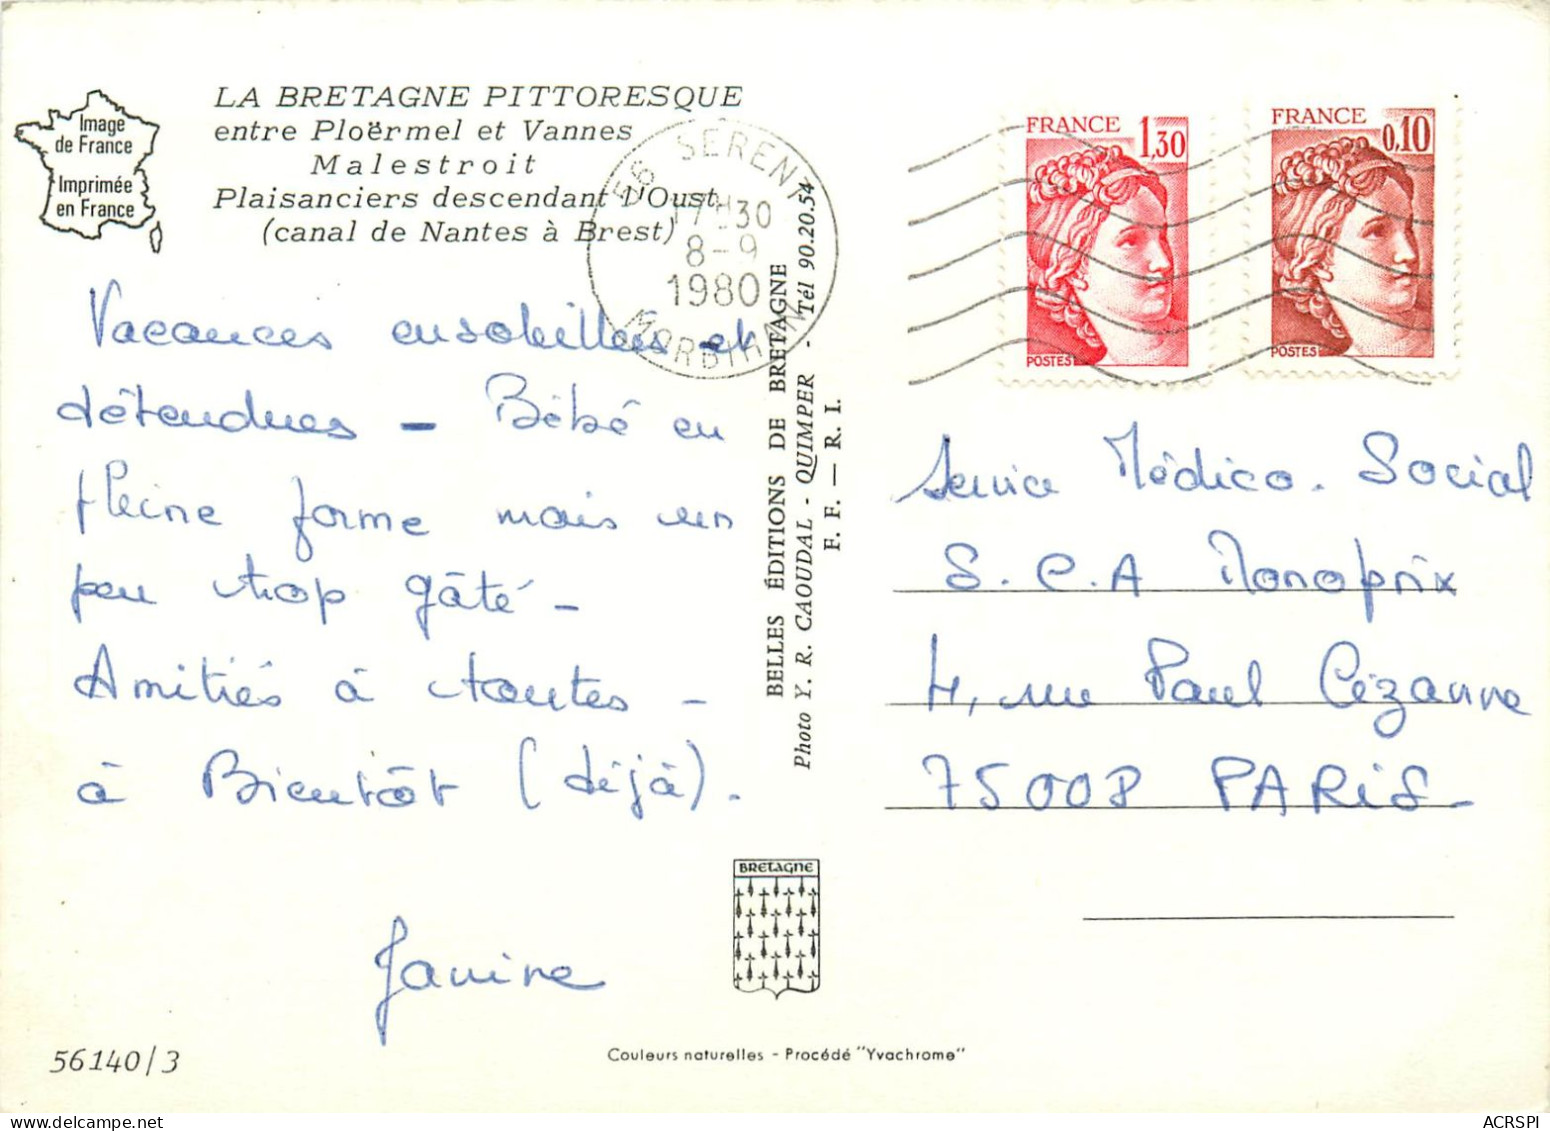 Image
de France
Imprimée
en France
LA BRETAGNE PITTORESQUE
entre Ploërmel et Vannes
Malestroit
Plaisanciers descendant l'Oust
(canal de Nantes à Brest)
56 SERENT
17H30
8-9
1980
MORBIHAN
FRANCE
1,30
POSTES
FRANCE
0,10
POSTES
Vacances ensoleillées et
détendues - Bébé en
pleine forme mais un
peu trop gâté -
Amitiés à toutes -
à Bientôt (déjà).
Janine
BELLES ÉDITIONS DE BRETAGNE
Photo Y. R. CAOUDAL - QUIMPER - Tél 90.20.54
F. F. — R. I.
Service Médico. Social
S.C.A Monoprix
4, rue Paul Cézanne
75008 PARIS -
BRETAGNE
56140/3
Couleurs naturelles - Procédé "Yvachrome"
ACRSPI